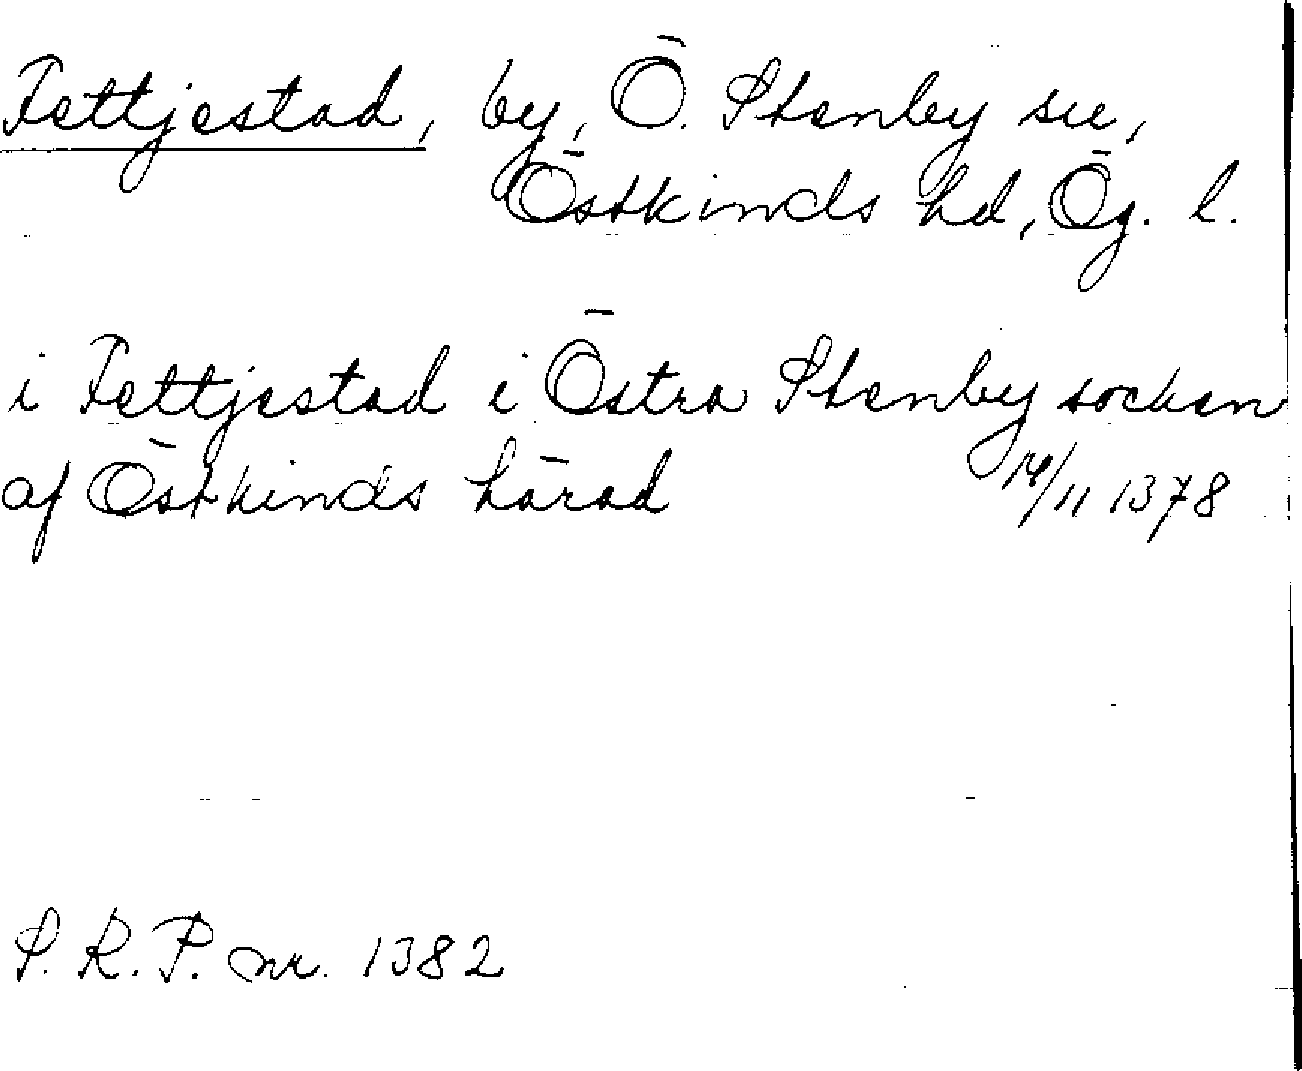 Fettjestad, by, Ö. Stenby sn,
Östkinds hd, Ög. l.
i Fettjestad i Östra Stenby socken
af Östkinds härad 14/11 1378
S. R. P. nr. 1382